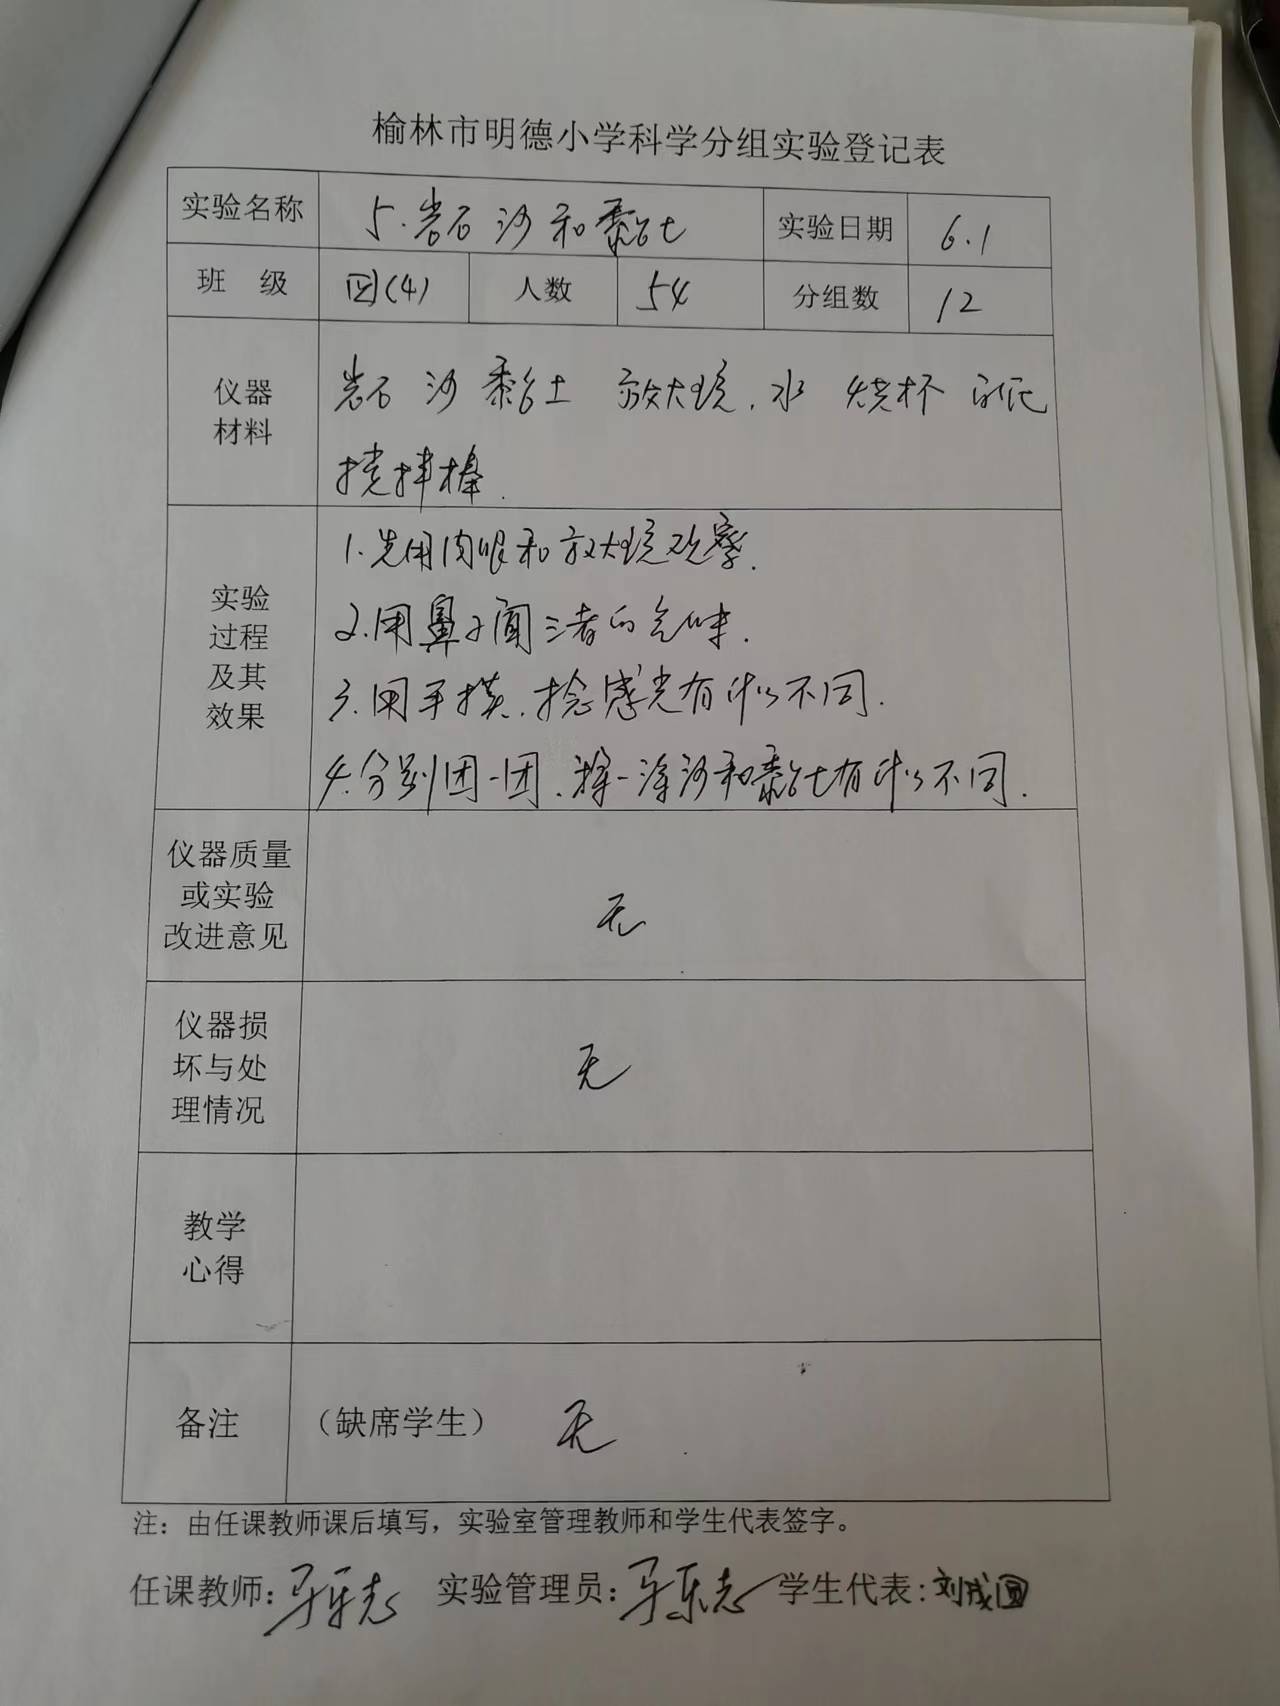 榆林市明德小学科学分组实验登记表
实验名称 5.岩石 沙和黏土 实验日期 6.1
班 级 四(4) 人数 54 分组数 12
仪器
材料
岩石 沙 黏土 放大镜.水 烧杯
搅拌棒.
实验
过程
及其
效果
1.先用肉眼和放大镜观察.
2.用鼻子闻三者的气味.
3.用手摸.捻感觉有什么不同.
4.分别团一团.搓一搓沙和黏土有什么不同.
仪器质量
或实验
改进意见
无
仪器损
坏与处
理情况
无
教学
心得
备注 (缺席学生) 无
注：由任课教师课后填写，实验室管理教师和学生代表签字。
任课教师: 实验管理员: 学生代表:刘成圆